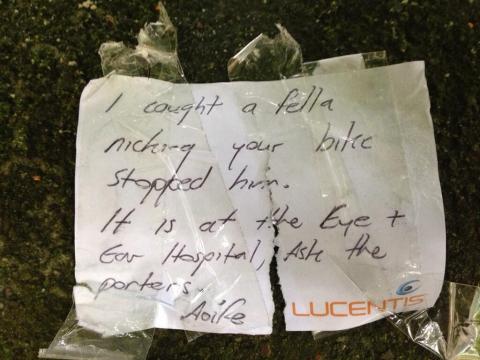 I caught a fella
nicking your bike
stopped him.
It is at the Eye +
Ear Hospital, Ask the
porters.
Aoife
LUCENTIS